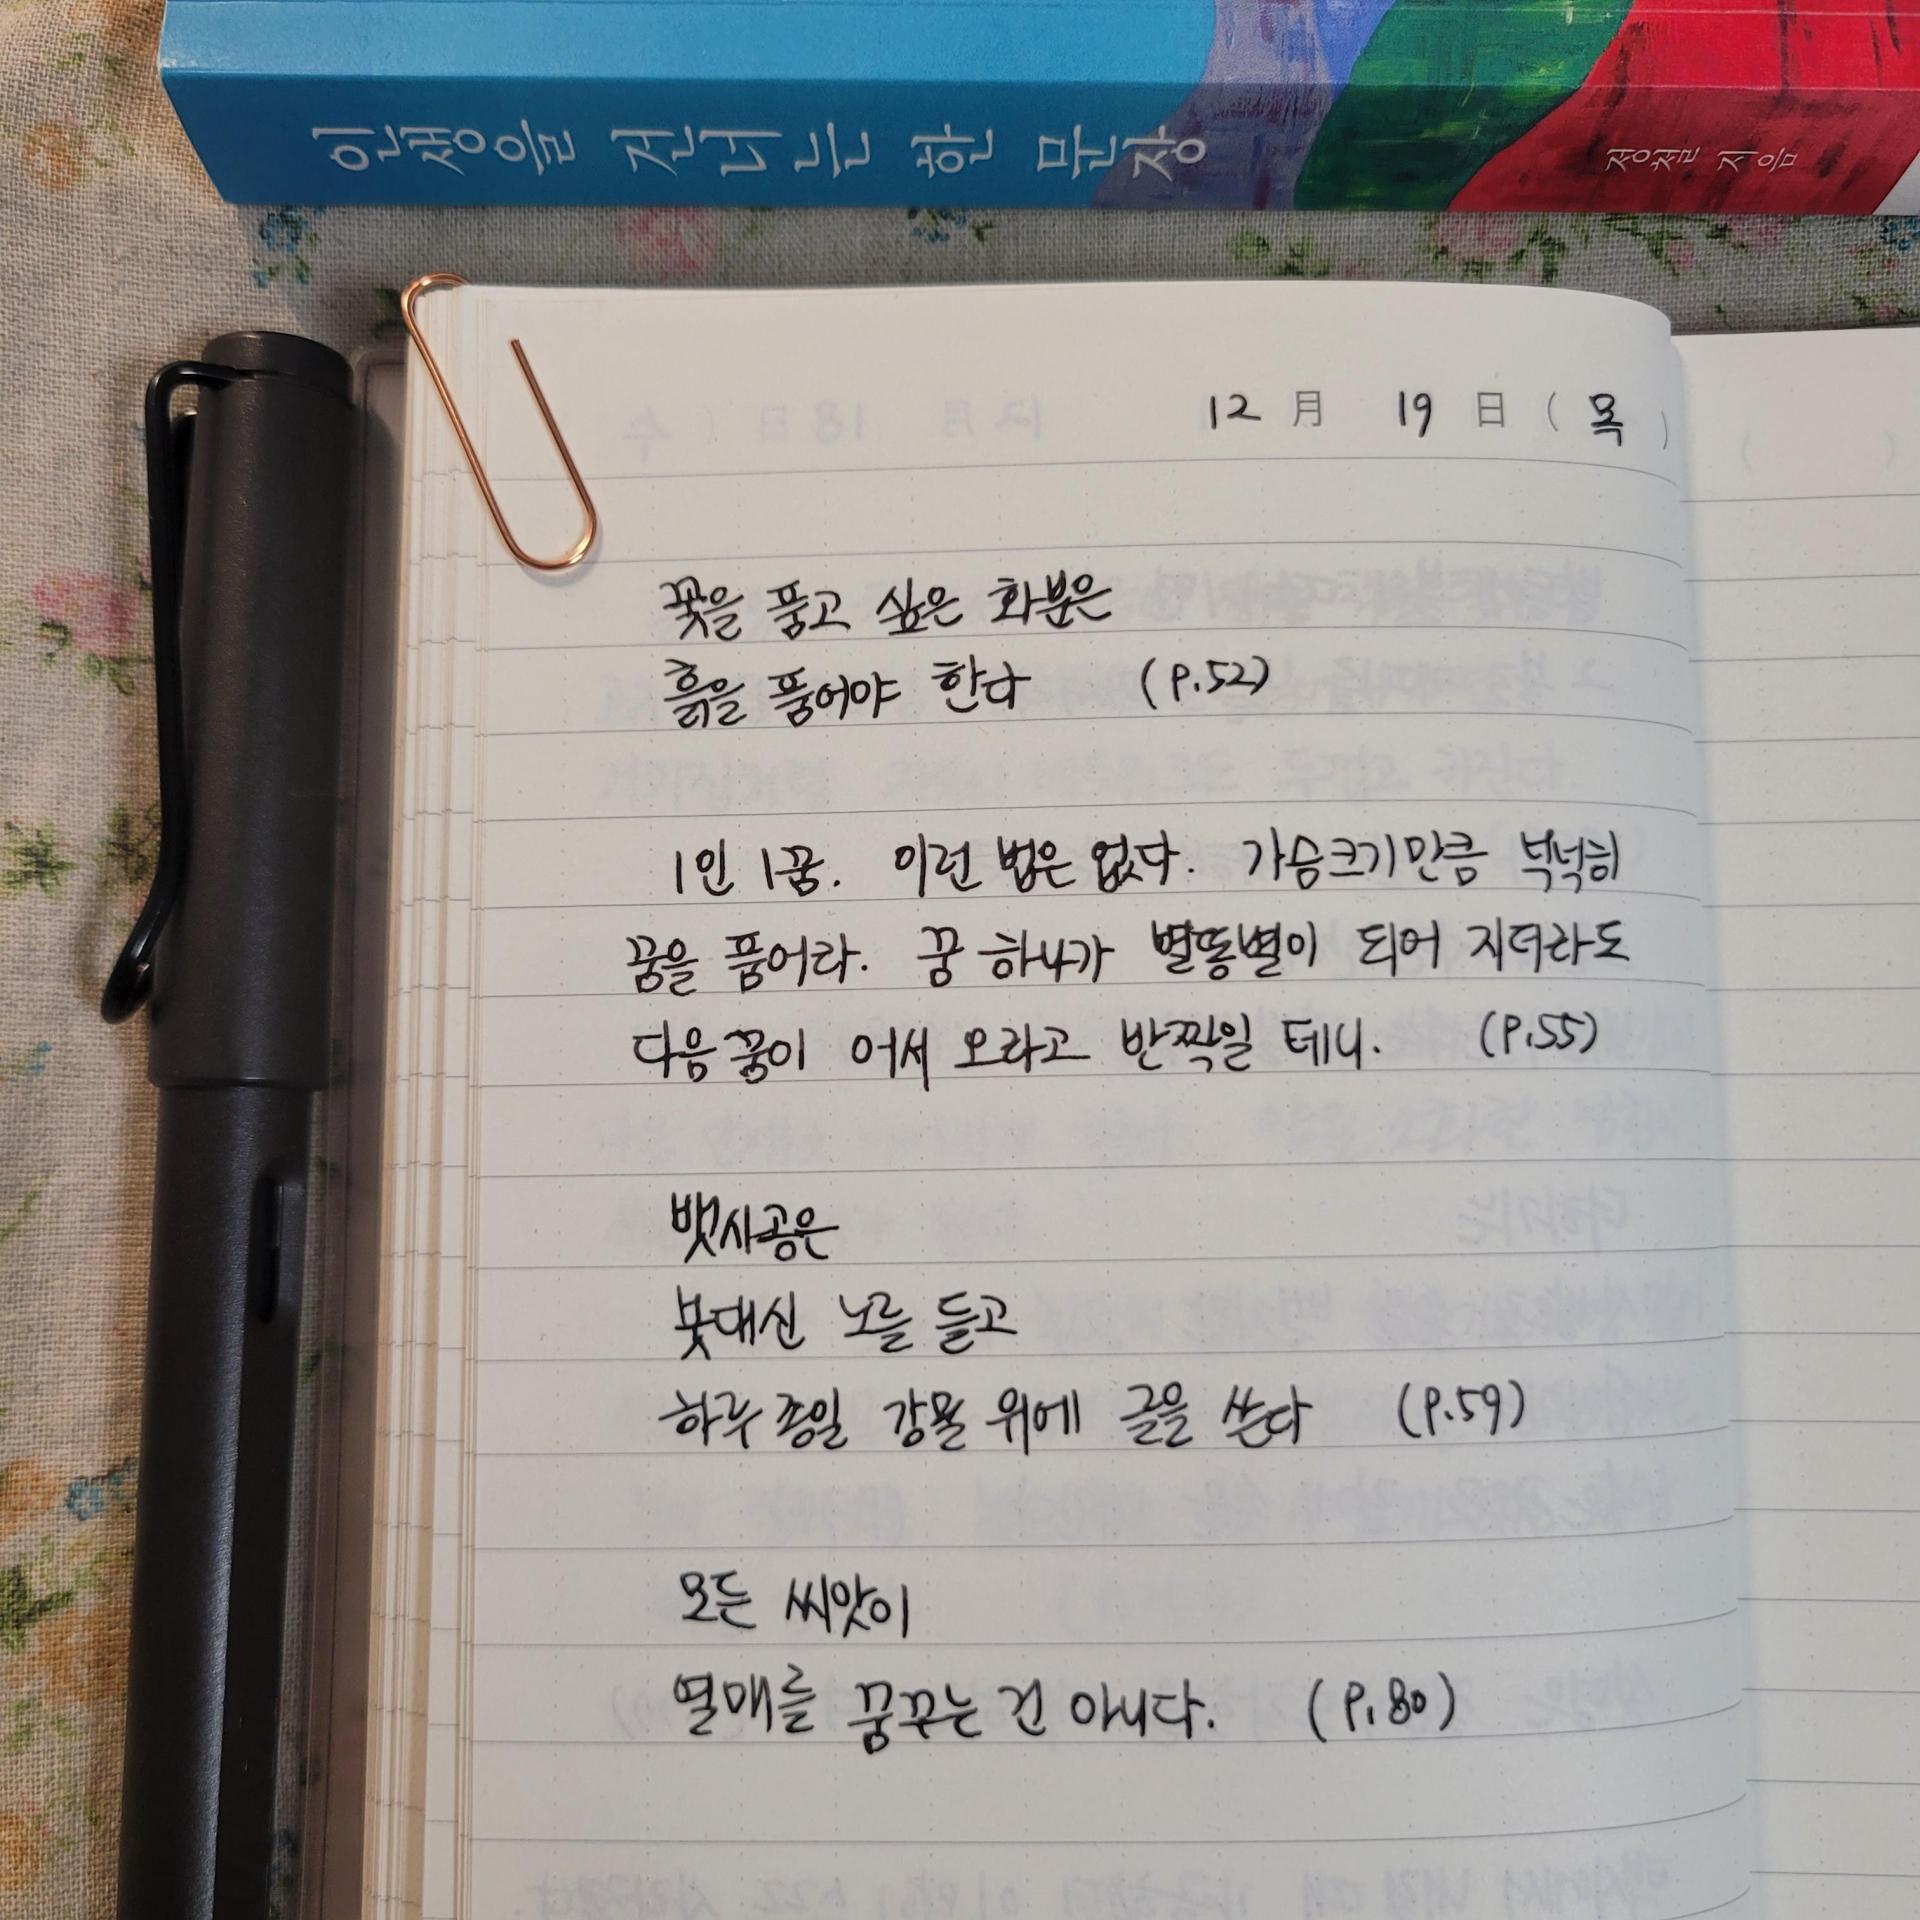 인생을 건너는 한 문장
정철 지음
12 月 19 日 (목)
꽃을 품고 싶은 화분은
흙을 품어야 한다 (P.52)
1인 1꿈. 이런 법은 없다. 가슴크기만큼 넉넉히
꿈을 품어라. 꿈 하나가 별똥별이 되어 지더라도
다음 꿈이 어서 오라고 반짝일 테니. (P.55)
뱃사공은
붓대신 노를 들고
하루 종일 강물 위에 글을 쓴다 (P.59)
모든 씨앗이
열매를 꿈꾸는 건 아니다. (P.80)